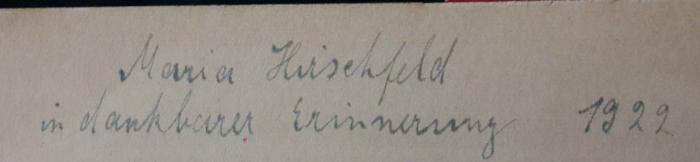 Maria Hirschfeld
in dankbarer Erinnerung 1922